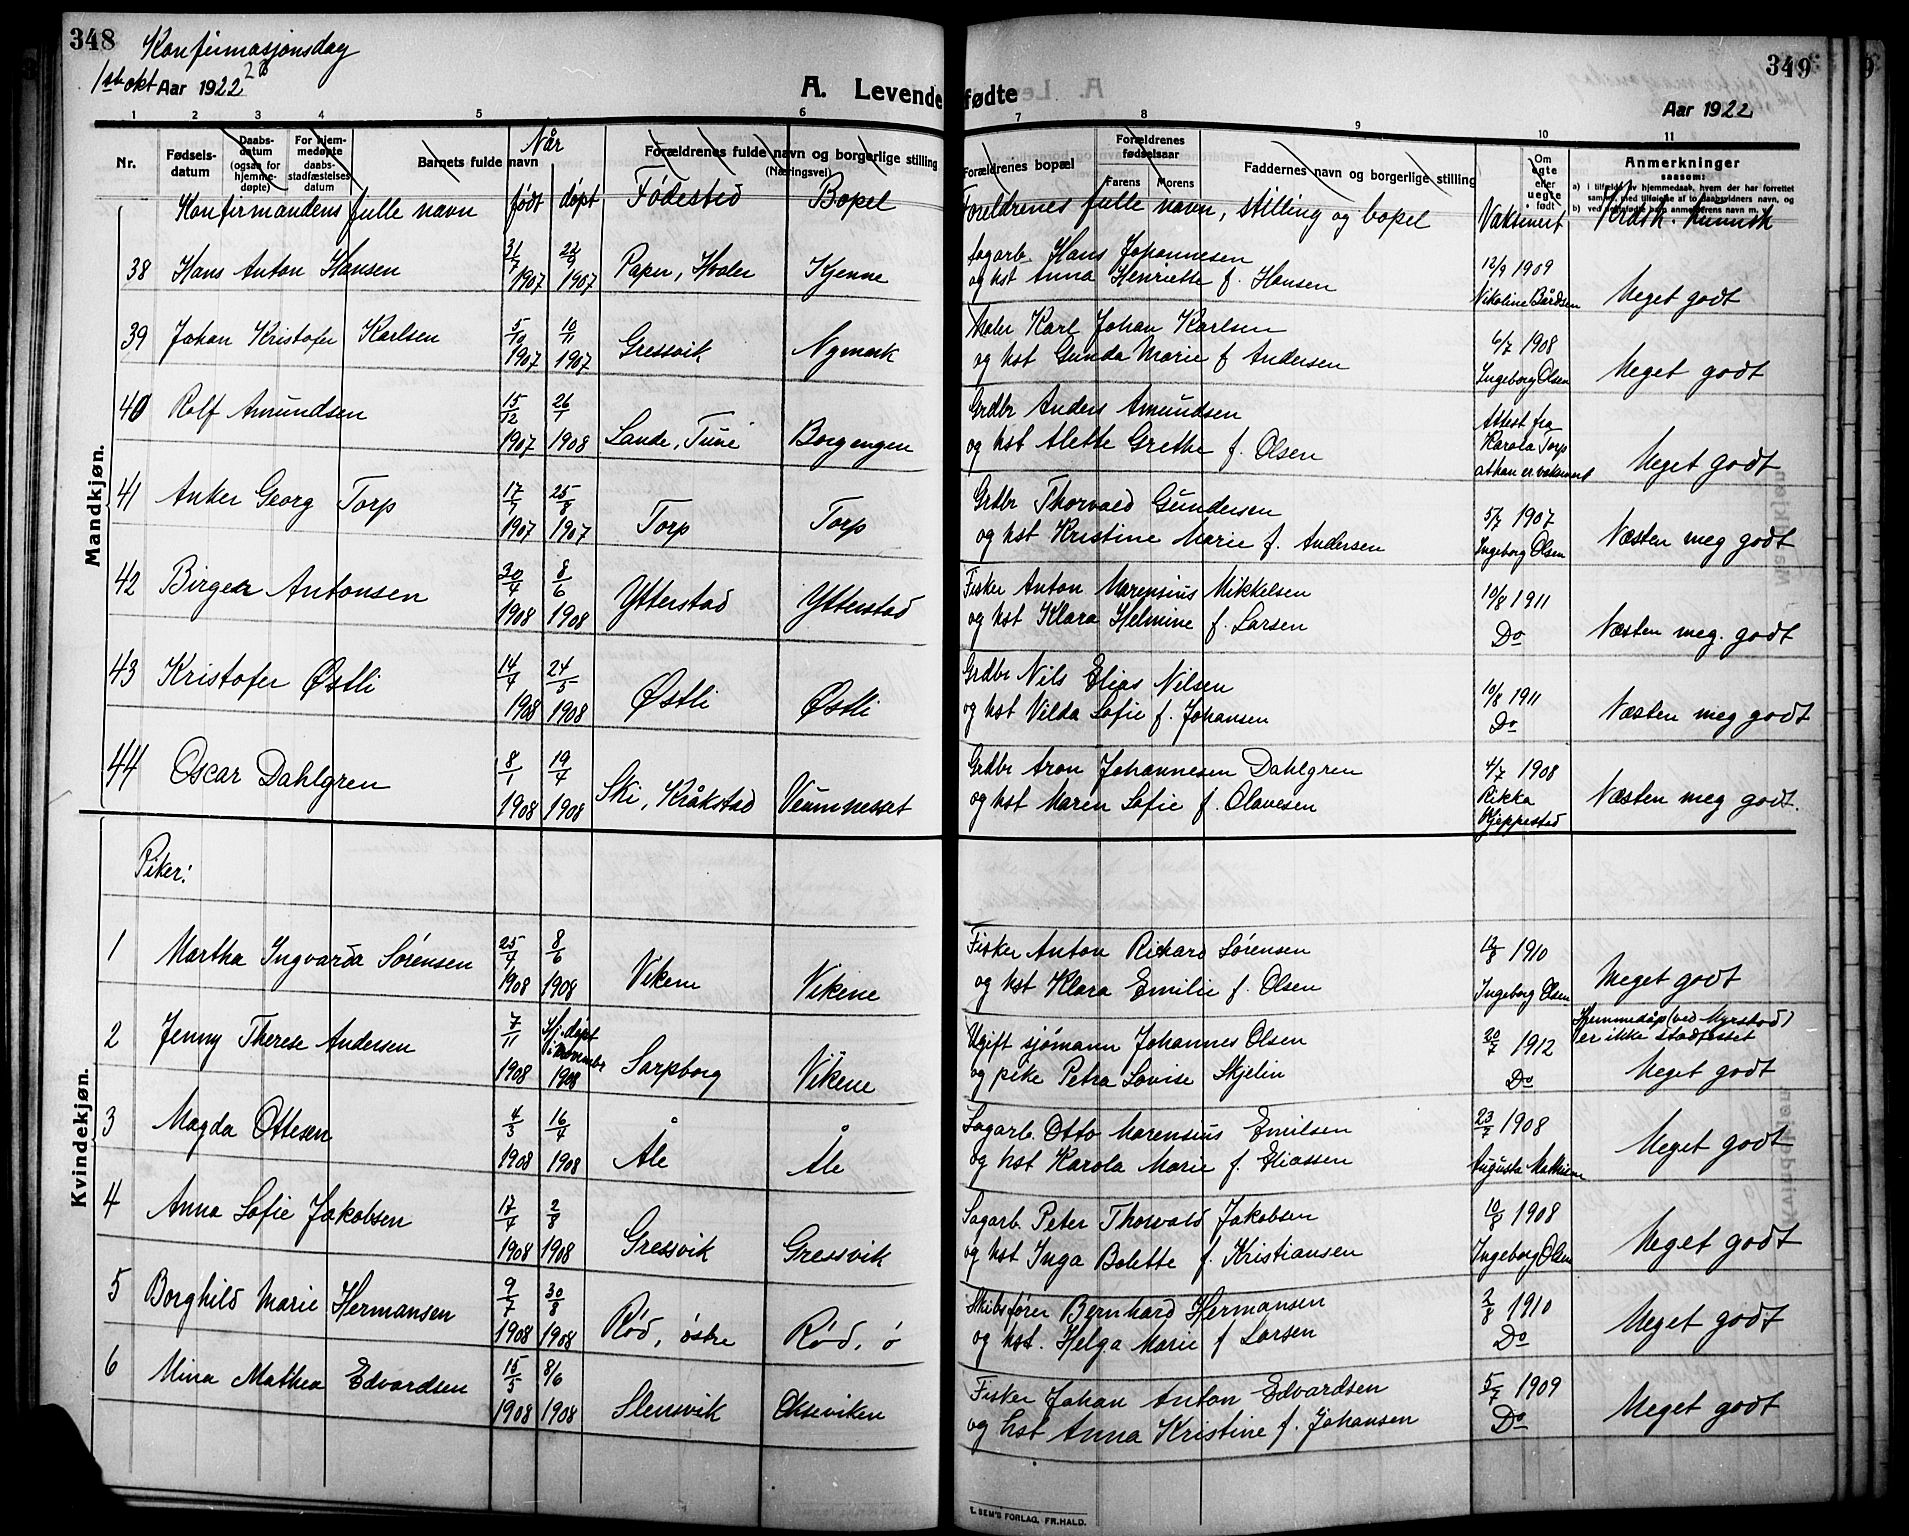 348
Konfirmasjonsdag
1ste okt Aar 1922
A. Levendefødte
349
Aar 1922
1 2 3 4 5 6 7 8 9 10 11
Nr.
Fødsels-datum
Daabs-datum (ogsaa for hjemme-døpte)
For hjem-medøpte daabs-stadfæstelses datum
Barnets fulde navn
Når
Forældrenes fulde navn og borgerlige stilling (Næringsvei)
Forældrenes bopæl
Forældrenes fødselsaar
Farens
Morens
Faddernes navn og borgerlige stilling
Om egte eller uegte født
Anmerkninger
saasom:
a) i tilfælde av hjemmedaab, hvem der har forrettet
Konfirmandens fulle navn født døpt Fødested Bopel Foreldrenes fulle navn, stilling og bopel Vaksinert
Mandkjøn.
38 Hans Anton Hansen 31/7 1907 22/9 1907 Paper, Hvaler Kjenne
Sagarb. Hans Johannesen
og hst Anna Henriette f. Hansen
12/9 1909
Nikoline Bårdsen
Meget godt
39 Johan Kristofer Karlsen 5/10 1907 10/11 1907 Gressvik Nymark
Maler Karl Johan Karlsen
og hst Gunda Marie f Andersen
6/7 1908
Ingeborg Olsen
Meget godt
40 Rolf Amundsen 15/12 1907 26/1 1908 Sande, Tune Borgengen
Grdbr Anders Amundsen
og hst Alette Grethe f. Olsen
Attest fra
Karola Torp
at han er vaksinert
Meget godt
41 Anker Georg Torp 17/7 1907 25/8 1907 Torp Torp
Grdbr Thorvald Gundersen
og hst Kristine Marie f. Andersen
5/7 1907
Ingeborg Olsen
Næsten meg godt
42 Birger Antonsen 30/4 1908 8/6 1908 Ytterstad Ytterstad
Fisker Anton Marensius Mikkelsen
og hst Klara Helmine f. Larsen
10/8 1911
Do
Næsten meg. godt
43 Kristofer Østli 14/4 1908 24/5 1908 Østli Østli
Grdbr Nils Elias Nilsen
og hst Vilda Sofie f. Johansen
10/8 1911
Do
Næsten meg godt
44 Oscar Dahlgren 8/1 1908 19/4 1908 Ski, Kråkstad Veumnesset
Grdbr Aron Johannesen Dahlgren
og hst Maren Sofie f. Olavesen
4/7 1908
Rikka
Kjeppestad
Næsten meg godt.
Kvindekjøn.
Piker:
1 Martha Ingvarda Sørensen 25/4 1908 8/6 1908 Vikene Vikene
Fisker Anton Rikard Sørensen
og hst Klara Emilie f. Olsen
12/8 1910
Ingeborg Olsen
Meget godt
2 Jenny Therese Andersen 7/11 1908 Hj. døpt i november 1908 Sarpborg Vikene
Ugift sjømann Johannes Olsen
og pike Petra Lovise Skjelin
20/7 1912
Do
Hjemmedåp (ved Myrstad)
er ikke stadfesset
Meget godt
3 Magda Ottesen 4/3 1908 16/4 1908 Åle Åle
Sagarb. Otto Marensius Emilsen
og hst Karola Marie f. Eliassen
23/7 1908
Meget godt
4 Anna Sofie Jakobsen 17/4 1908 2/8 1908 Gressvik Gressvik
Sagarb. Peter Thorvald Jakobsen
og hst Inga Bolette f. Kristiansen
10/8 1908
Ingeborg Olsen
Meget godt
5 Borghild Marie Hermansen 9/7 1908 30/8 1908 Rød, østre Rød, ø
Skibsfører Bernhard Hermansen
og hst. Helga Marie f Larsen
2/8 1910
Do
Meget godt
6 Mina Mathea Edvardsen 15/5 1908 8/6 1908 Slevvik Okseviken
Fisker Johan Anton Edvardsen
og hst Anna Kristine f. Johansen
5/7 1909
Do
Meget godt
E. SEM'S FORLAG, FR.HALD.